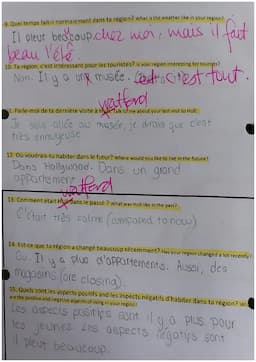 9. Quel temps fait-il normalement dans ta région? What is the weather like in your region?
Il pleut beaucoup chez moi, mais il fait
beau l'été.
10. Ta région, c'est intéressant pour les touristes? Is your region interesting for tourists?
Non. Il y a un musée. c'est tout.
watford
11. Parle-moi de ta dernière visite à
Je suis allée au musée, je dirais que c'est
très ennuyeuse
12. Où voudrais-tu habiter dans le futur? Where would you like to live in the future?
Dans Hollywood. Dans un grand
appartement
watford
13. Comment était dans le passé? What was like in the past?
C'était très calme (compared to now)
14. Est-ce que ta région a changé beaucoup récemment? Has your region changed a lot recently?
Oui. Il y a plus d'appartements. Aussi, des
magasins (are closing)
15. Quels sont les aspects positifs et les aspects négatifs d'habiter dans ta région? What
are the positive and negative aspects of living in your region?
Les aspects positifs sont il y a plus pour
les jeunes. Les aspects négatifs sont
il pleut beaucoup.